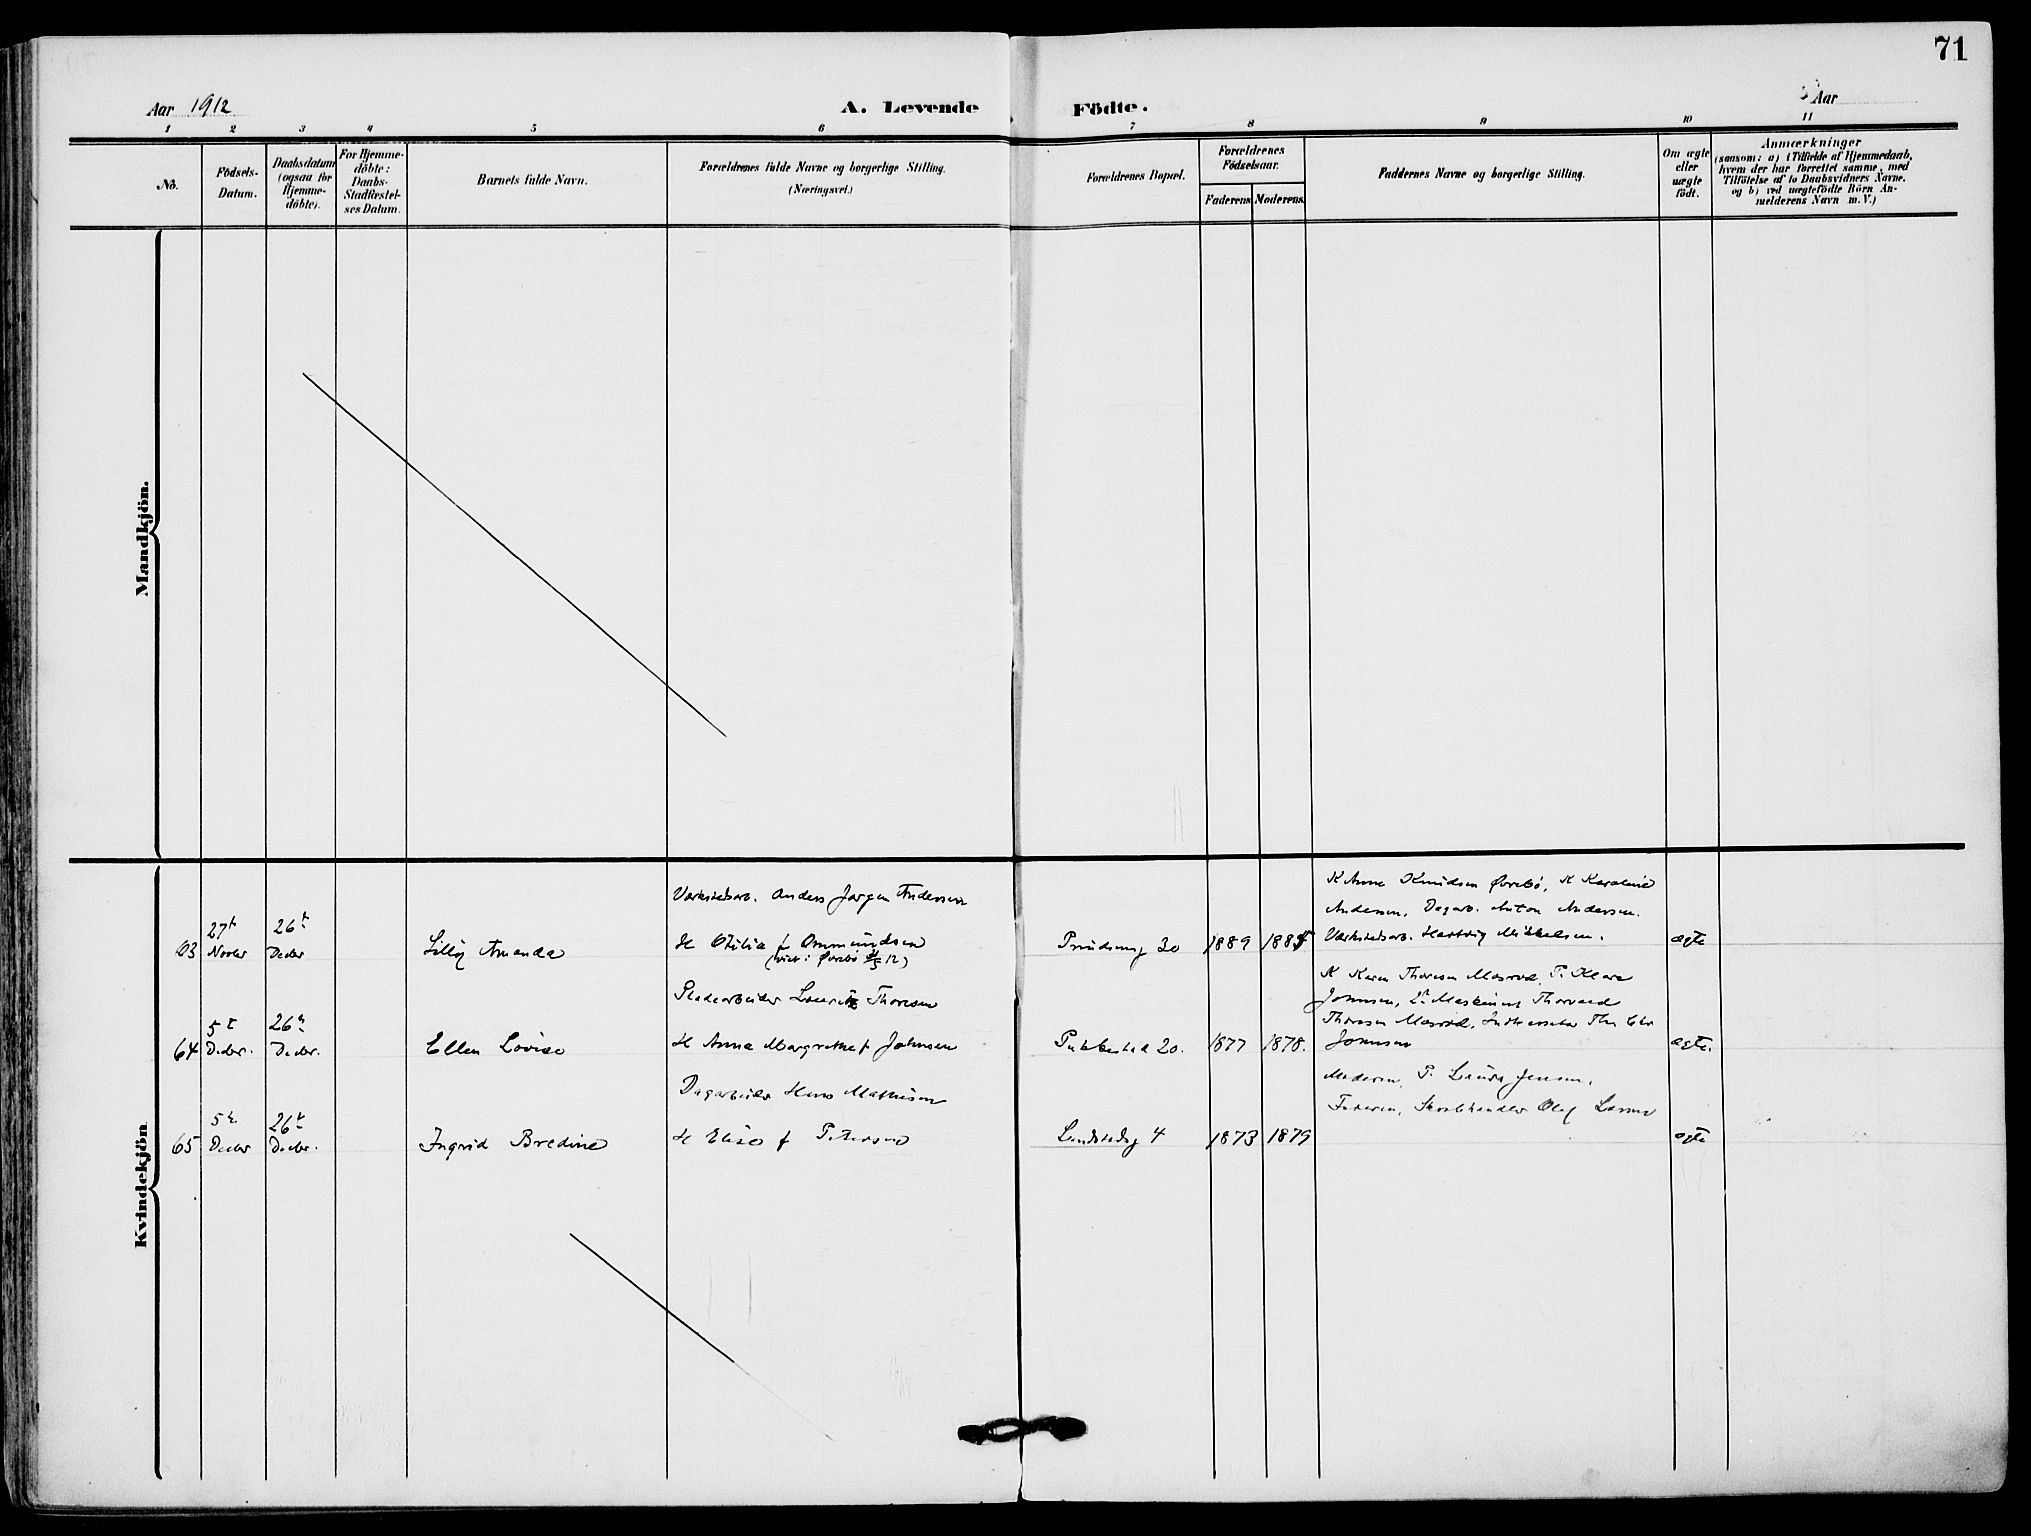 71
Aar 1912
A. Levende
Födte.
Aar
1 2 3 4 5 6 7 8 9 10 11
No.
Födsels-
Datum.
Daabsdatum
(ogsaa for
Hjemme-
döbte).
For Hjemme-
döbte:
Daabs-
Stadfæstel-
ses Datum.
Barnets fulde Navn.
Forældrenes fulde Navne og borgerlige Stilling.
(Næringsvei.)
Forældrenes Bopæl.
Forældrenes
Födselsaar.
Faderens
Moderens.
Faddernes Navne og borgerlige Stilling.
Om ægte
eller
uægte
født.
Anmærkninger
(saasom: a) i Tilfælde af Hjemmedaab,
hvem der har forrettet samme, med
Tilföielse af to Daabsvidners Navne.
og b) ved uægtefödte Börn An-
melderens Navn m. V.)
Mandkjön.
Kvindekjön
63
27t
Novbr
26t
Decbr
Lilly Amanda
Værkstedsarb. Anders Jørgen Andersen
H Otilia f Ommundsen
(viet i Øvrebø 12)
30
1889
188
K Anna Knudsen Øvrebø, K Karoline
Andersen, Dagarb. Anton Andersen.
Værkstedsarb. Hartvig Mikkelsen.
ægte
64
5t
Decbr.
26t
Decbr.
Ellen Lovise
Lauritz Thoresen
H Anna Margrethe f Johnsen
Pukkestad 20.
1877
1878.
K Karen Thoresen Mosrød, P. Klara
Johnsen, Thorvald
Thoresen Mosrød, Chr
Johnsen
ægte.
65
5t
Decbr
26t
Decbr.
Ingrid Bredine
Dagarbeider Hans Mathisen
H Elise f Petersen
Landstadsg 4
1873
1879
Moderen, P. Laura Jensen,
Faderen, Olaf Larsen
ægte